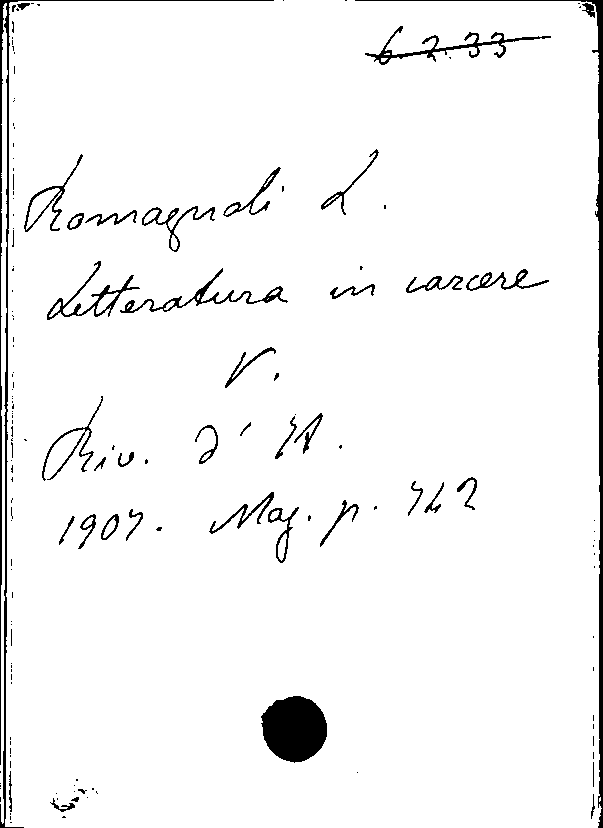 6.2.33
Romagnoli L.
Letteratura in carcere
V.
Riv. d' It.
1907. Mag. p. 742